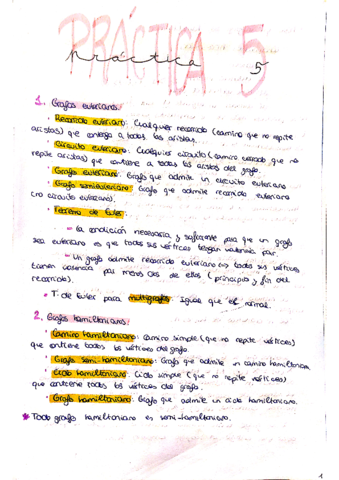 PRÁCTICA 5
práctica 5
1. Grafos eulerianos:
• Recorrido euleriano: Cualquier recorrido (camino que no repite
aristas) que contenga a todas las aristas.
• Circuito euleriano: Cualquier circuito (camino cerrado que no
repite aristas) que contiene a todas las aristas del grafo.
• Grafo euleriano: Grafo que admite un circuito euleriano
• Grafo semieuleriano: Grafo que admite recorrido euleriano
(no circuito euleriano).
• Teorema de Euler:
- La condición necesaria y suficiente para que un grafo
sea euleriano es que todos sus vértices tengan valencia par.
- Un grafo admite recorrido euleriano <=> todos sus vértices
tienen valencia par menos dos de ellos (principio y fin del
recorrido).
• T. de Euler para multigrafos: Igual que el normal.
2. Grafos hamiltonianos:
• Camino hamiltoniano: Camino simple (que no repite vértices)
que contiene todos los vértices del grafo.
• Grafo semi-hamiltoniano: Grafo que admite un camino hamiltoniano.
• Ciclo hamiltoniano: Ciclo simple (que no repite vértices)
que contiene todos los vértices del grafo.
• Grafo hamiltoniano: Grafo que admite un ciclo hamiltoniano.
* Todo grafo hamiltoniano es semi-hamiltoniano.
1